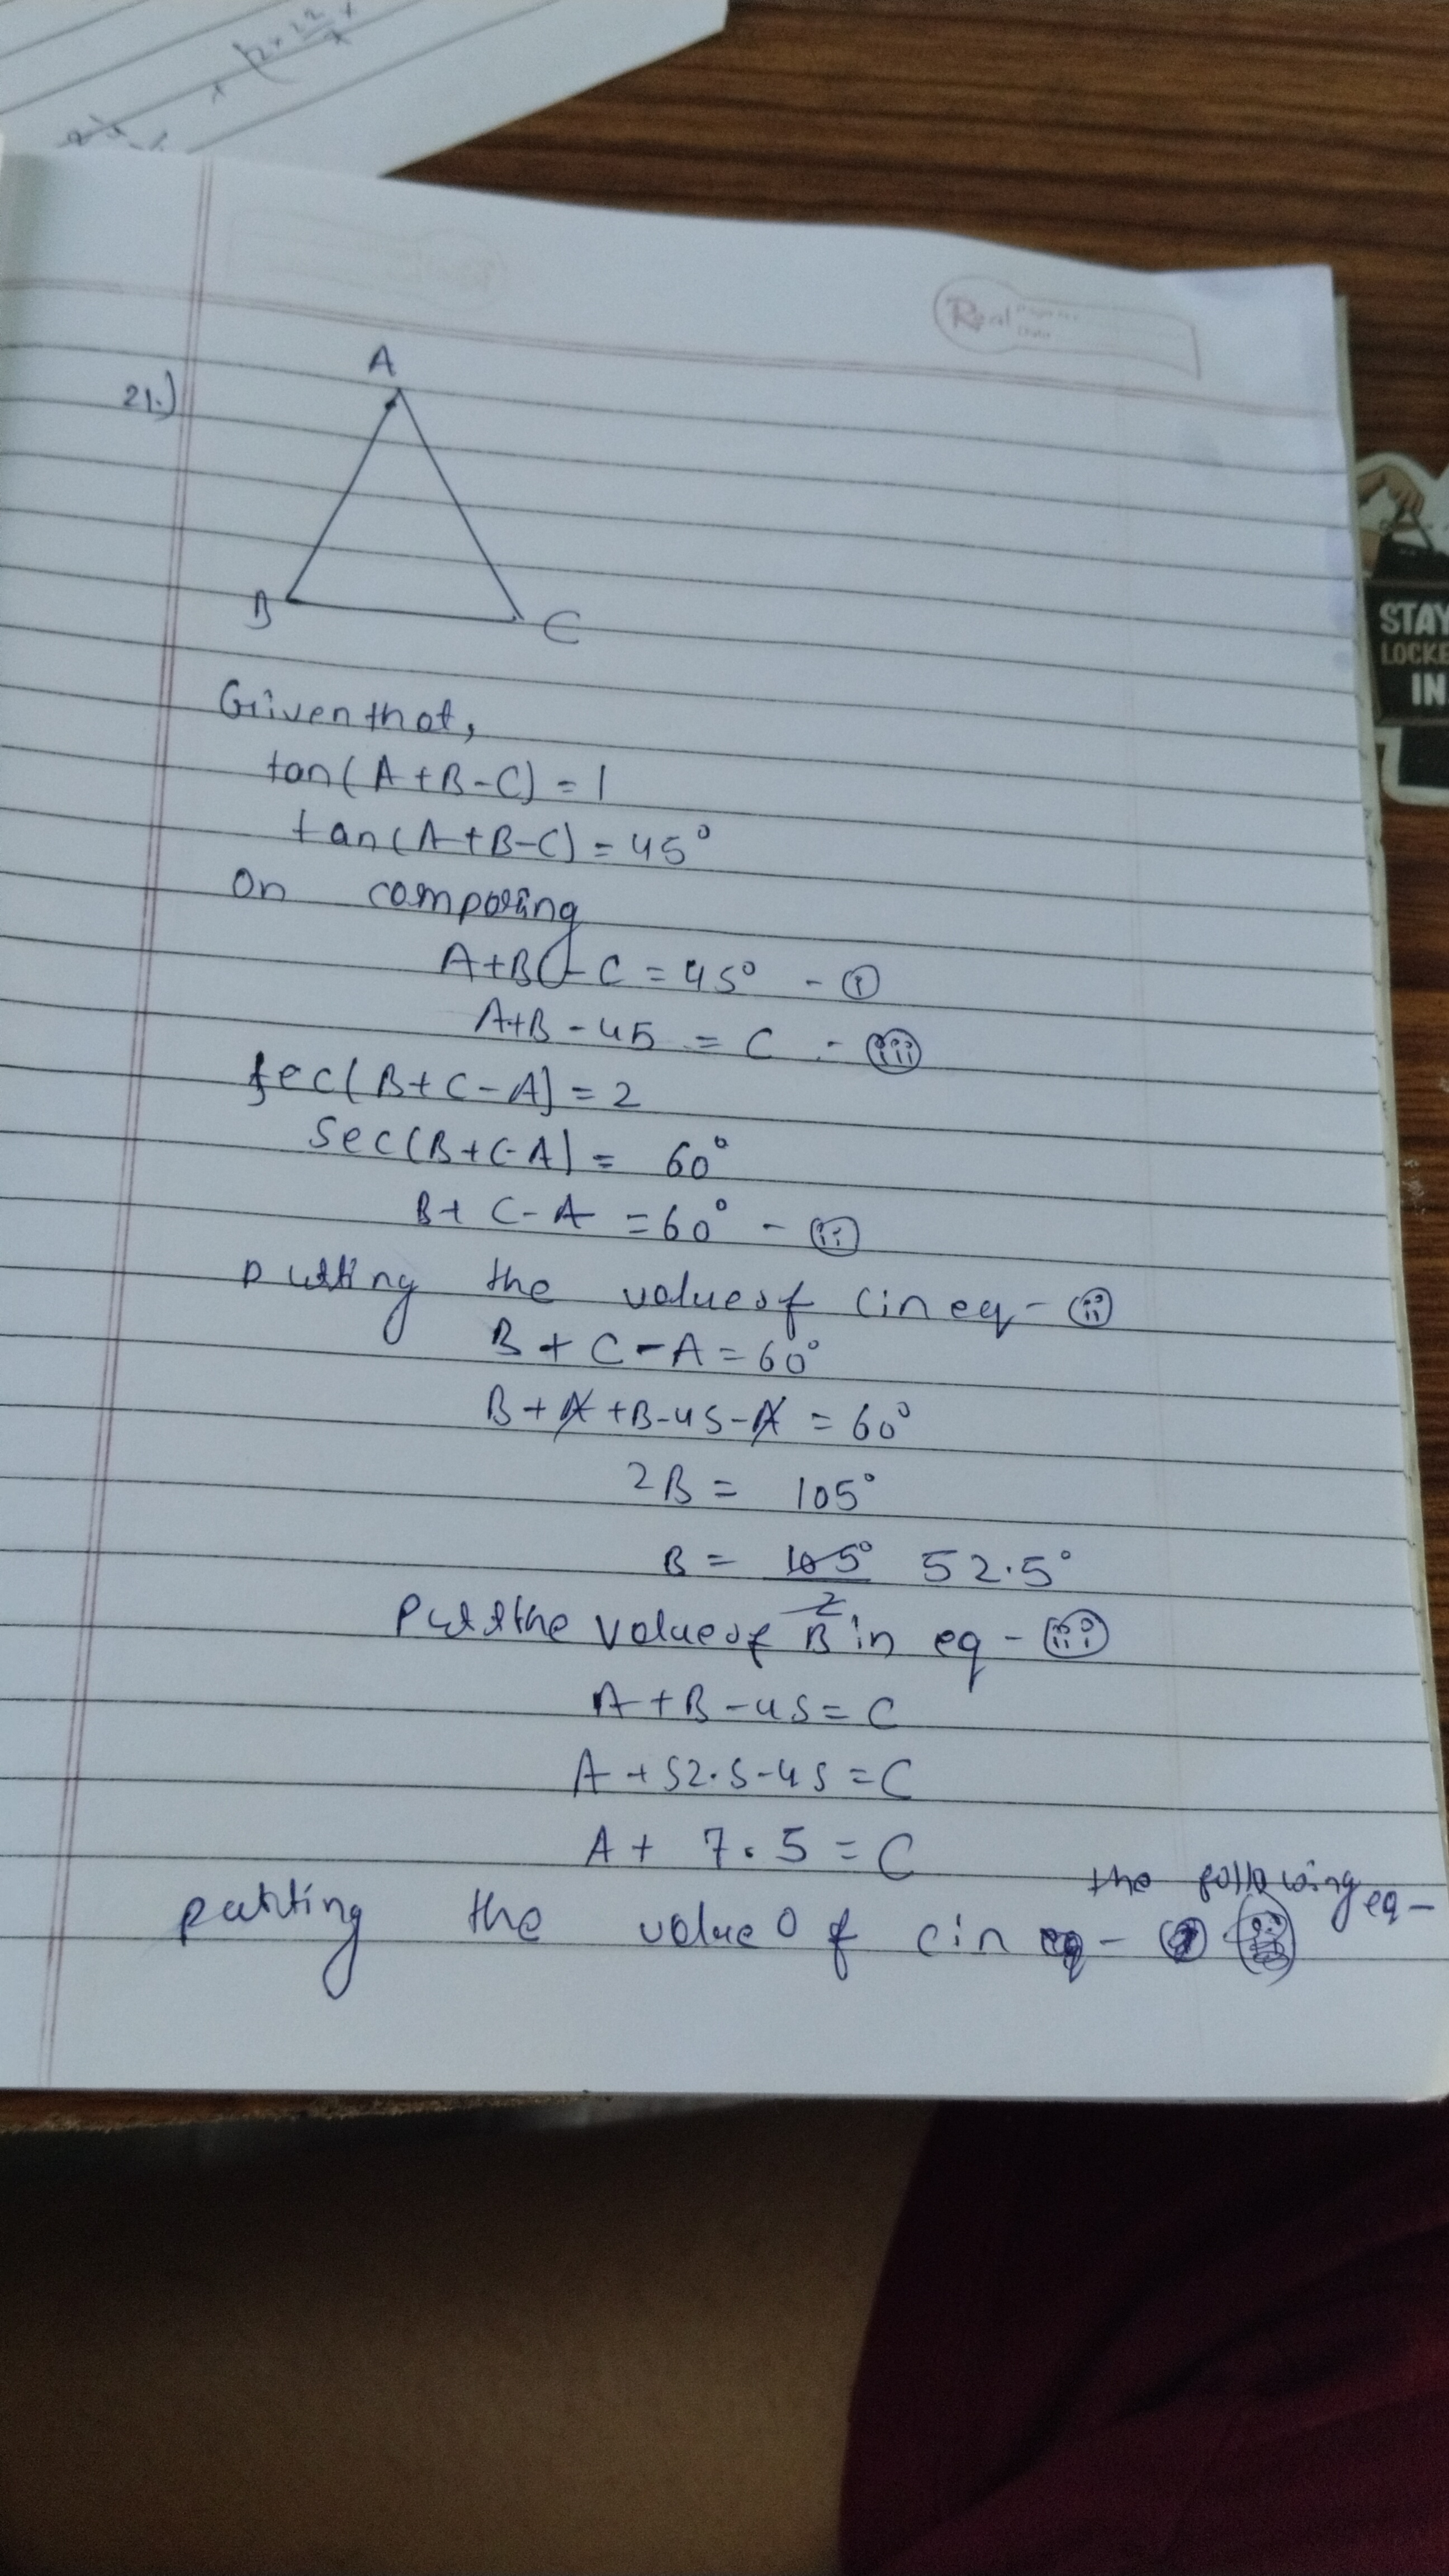 Real
A
21.)
B
C
Given that,
tan(A+B-C) = 1
tan(A+B-C) = 45°
On comparing
A+B-C = 45° - (i)
A+B-45 = C - (iii)
sec(B+C-A) = 2
sec(B+C-A) = 60°
B+C-A = 60° - (ii)
putting the value of C in eq - (ii)
B + C - A = 60°
B + A + B - 45 - A = 60°
2B = 105°
B = 105°/2 52.5°
Put the value of B in eq - (iii)
A + B - 45 = C
A + 52.5 - 45 = C
A + 7.5 = C
the following eq -
putting the value of C in
STAY
LOCKE
IN